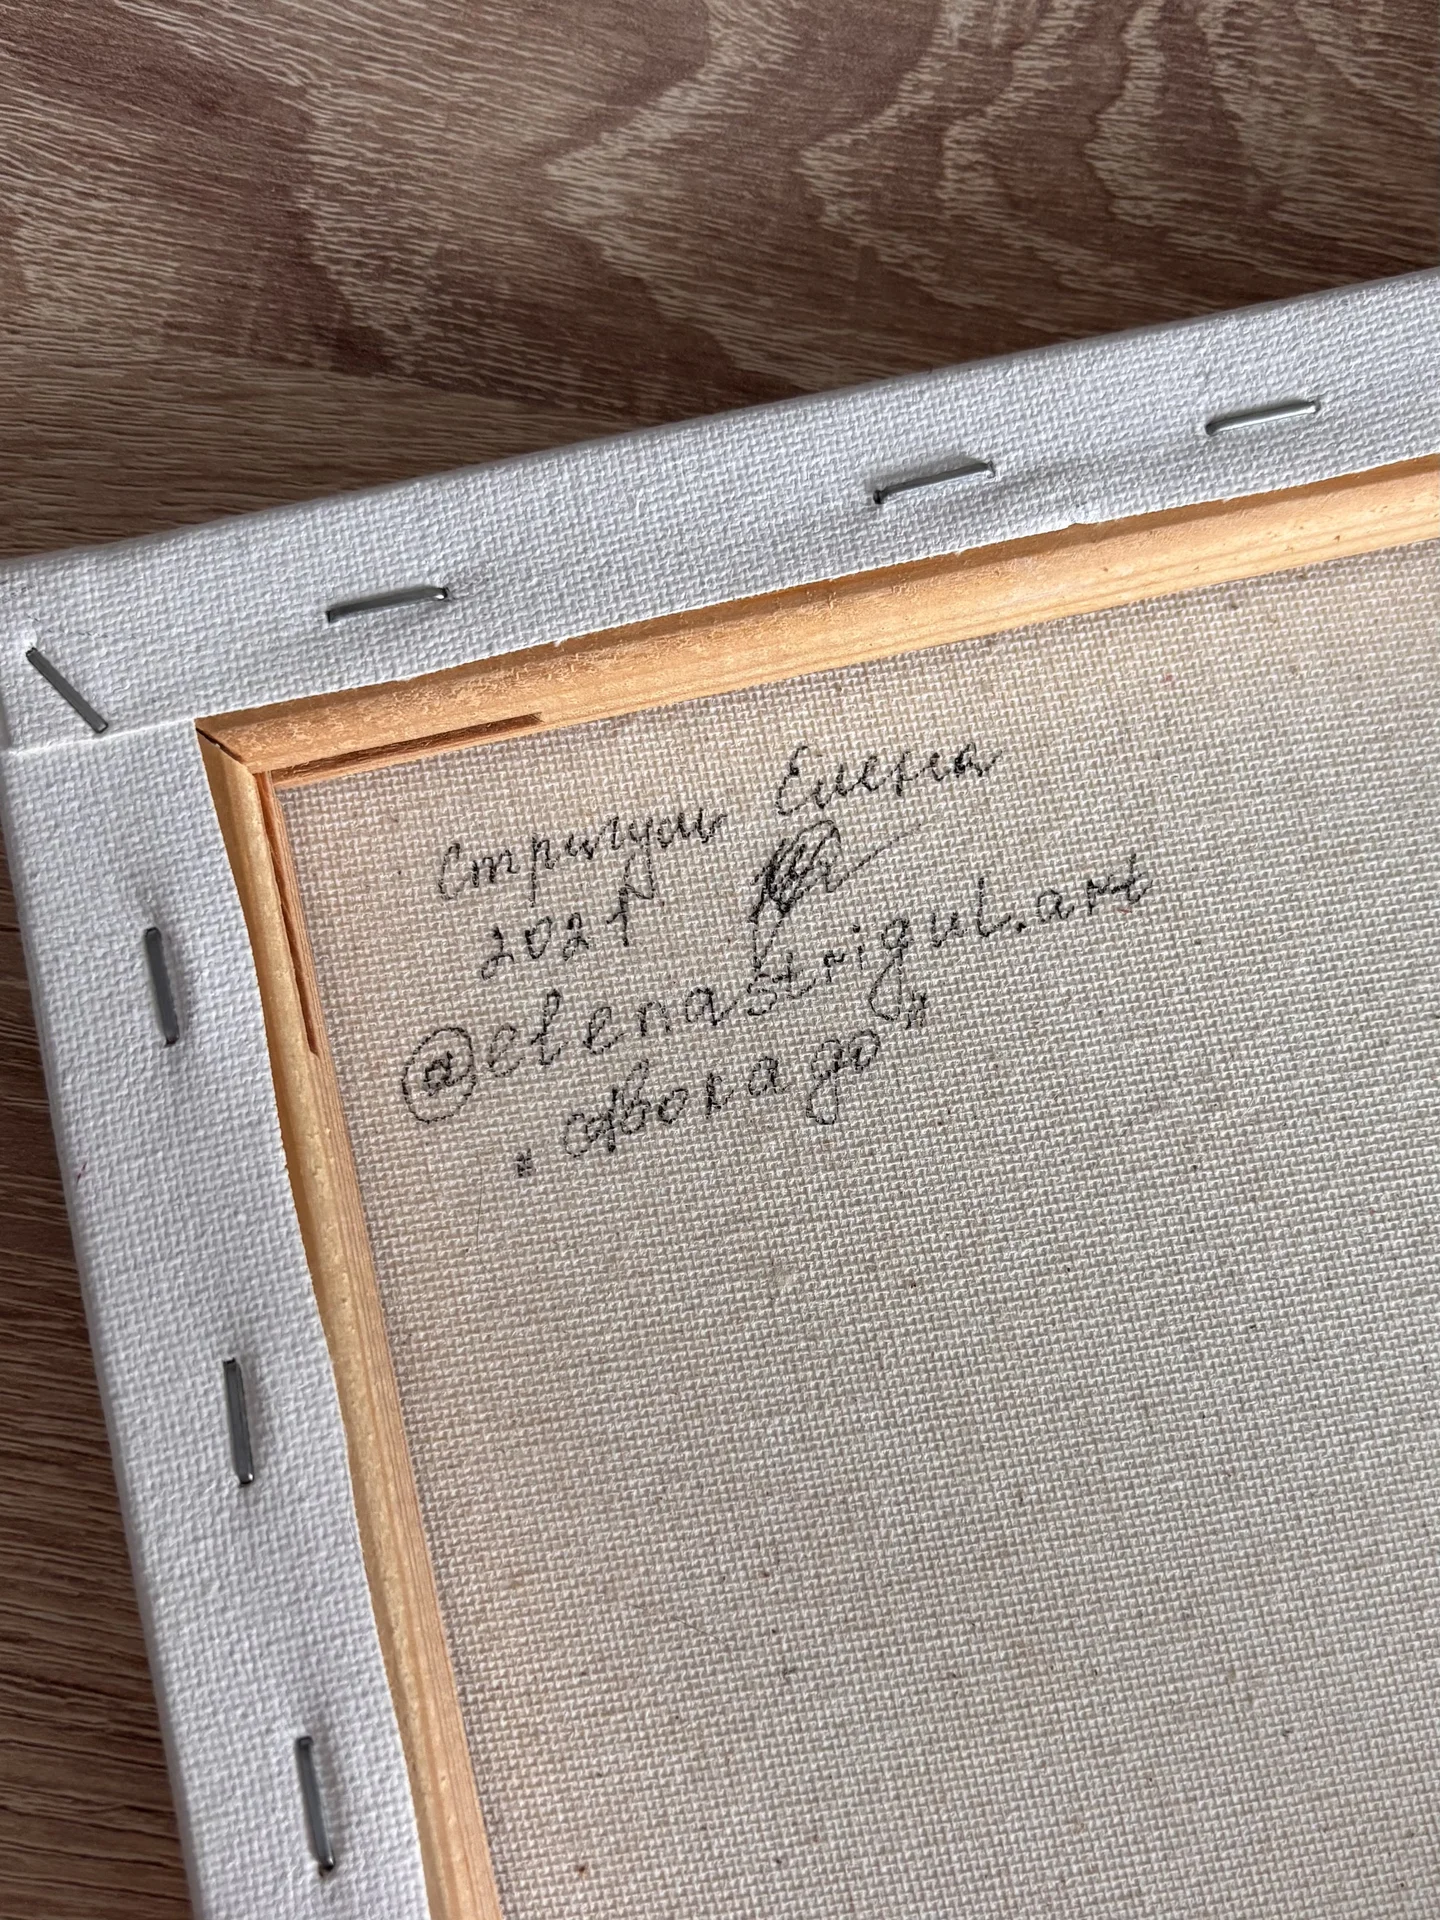 Стригуль Елена
2021
@elenastrigul.art
„Авокадо"